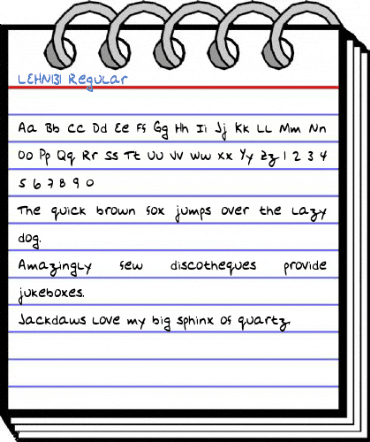 LEHN131 Regular
Aa Bb Cc Dd Ee Ff Gg Hh Ii Jj Kk LL Mm Nn
Oo Pp Qq Rr Ss Tt Uu Vv Ww Xx Yy Zz 1 2 3 4
5 6 7 8 9 0
The quick brown fox jumps over the Lazy
dog.
AmazingLy few discotheques provide
jukeboxes.
Jackdaws Love my big sphinx of quartz